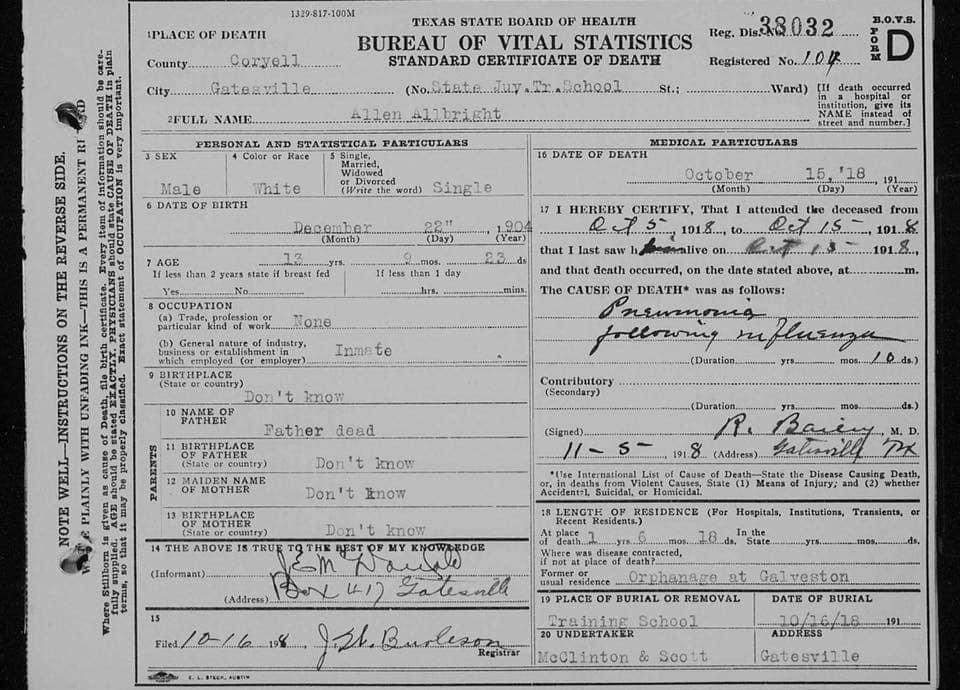 1329-817-100M
TEXAS STATE BOARD OF HEALTH
BUREAU OF VITAL STATISTICS
STANDARD CERTIFICATE OF DEATH
Reg. Dis. No. 38032
Registered No. 104
B.O.V.S.
FORM D
1 PLACE OF DEATH
County Coryell
City Gatesville (No. State Juv.Tr.School St.; Ward)
[If death occurred
in a hospital or
institution, give its
NAME instead of
street and number.]
2 FULL NAME Allen Allbright
NOTE WELL—INSTRUCTIONS ON THE REVERSE SIDE.
PLAINLY WITH UNFADING INK—THIS IS A PERMANENT
Where Stillborn is given as cause of Death, file birth certificate. Every item of information should be care-
fully supplied. AGE should be stated EXACTLY. PHYSICIANS should state CAUSE OF DEATH in plain
terms, so that it may be properly classified. Exact statement of OCCUPATION is very important.
PERSONAL AND STATISTICAL PARTICULARS
3 SEX
Male
4 Color or Race
White
5 Single,
Married,
Widowed
or Divorced
(Write the word) Single
6 DATE OF BIRTH
December 22" , 1904
(Month) (Day) (Year)
7 AGE 13 yrs. 9 mos. 23 ds
If less than 2 years state if breast fed
Yes No
If less than 1 day
hrs. mins.
8 OCCUPATION
(a) Trade, profession or
particular kind of work None
(b) General nature of industry,
business or establishment in
which employed (or employer) Inmate
9 BIRTHPLACE
(State or country)
Don't know
PARENTS
10 NAME OF
FATHER
Father dead
11 BIRTHPLACE
OF FATHER
(State or country) Don't know
12 MAIDEN NAME
OF MOTHER Don't know
13 BIRTHPLACE
OF MOTHER
(State or country) Don't know
14 THE ABOVE IS TRUE TO THE BEST OF MY KNOWLEDGE
(Informant)
(Address) Box 417 Gatesville
15
Filed 10-16 1918, J. W. Burleson
Registrar
E. L. STECK, AUSTIN
MEDICAL PARTICULARS
16 DATE OF DEATH
October 15,'18 , 191
(Month) (Day) (Year)
17 I HEREBY CERTIFY, That I attended the deceased from
Oct 5 , 1918, to Oct 15- , 1918
that I last saw him alive on Oct 15- 1918,
and that death occurred, on the date stated above, at m.
The CAUSE OF DEATH* was as follows:
Pneumonia
following influenza
(Duration yrs. mos. 10 ds.)
Contributory
(Secondary)
(Duration yrs. mos. ds.)
(Signed) R. Bailey, M. D.
11-5- , 1918 (Address) Gatesville Tx
*Use International List of Cause of Death—State the Disease Causing Death,
or, in deaths from Violent Causes, State (1) Means of Injury; and (2) whether
Accidental, Suicidal, or Homicidal.
18 LENGTH OF RESIDENCE (For Hospitals, Institutions, Transients, or
Recent Residents.)
At place
of death 1 yrs. 6 mos. 18 ds. In the
State yrs. mos. ds.
Where was disease contracted,
if not at place of death?
Former or
usual residence Orphanage at Galveston
19 PLACE OF BURIAL OR REMOVAL
Training School
DATE OF BURIAL
10/16/18 191
20 UNDERTAKER
McClinton & Scott
ADDRESS
Gatesville